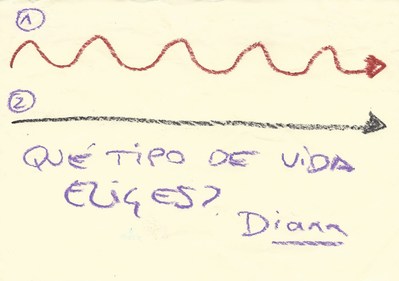 1
2
QUÉ TIPO DE VIDA
ELIGES?
Diana